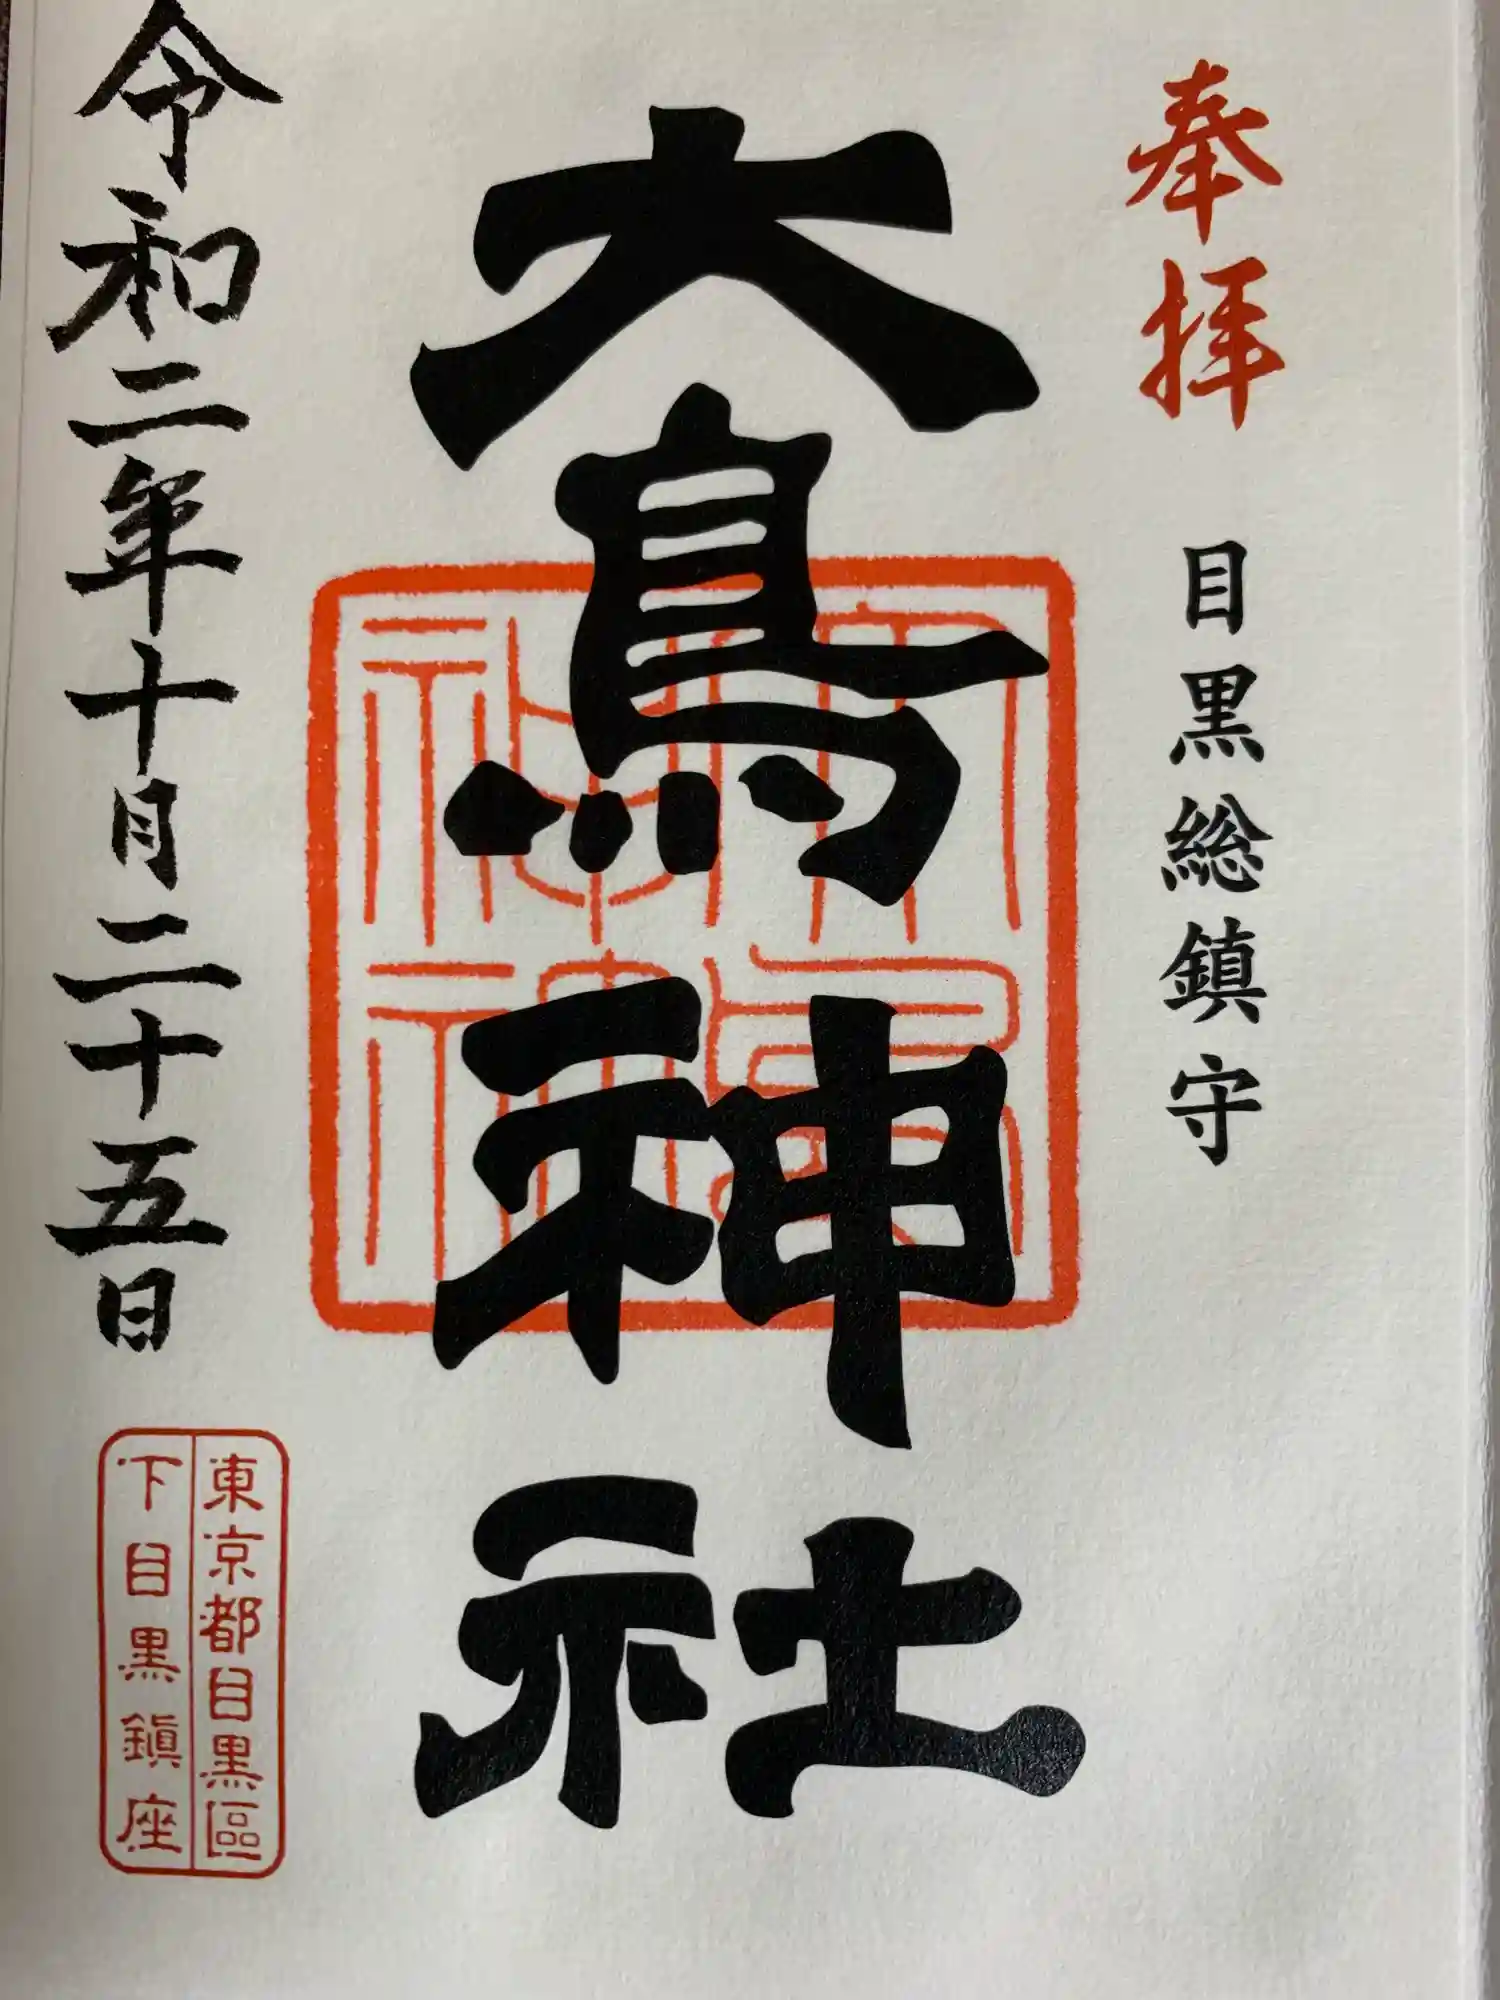 奉拝
目黒総鎮守
大鳥神社
大鳥神社
令和二年十月二十五日
東京都目黒區
下目黒鎭座